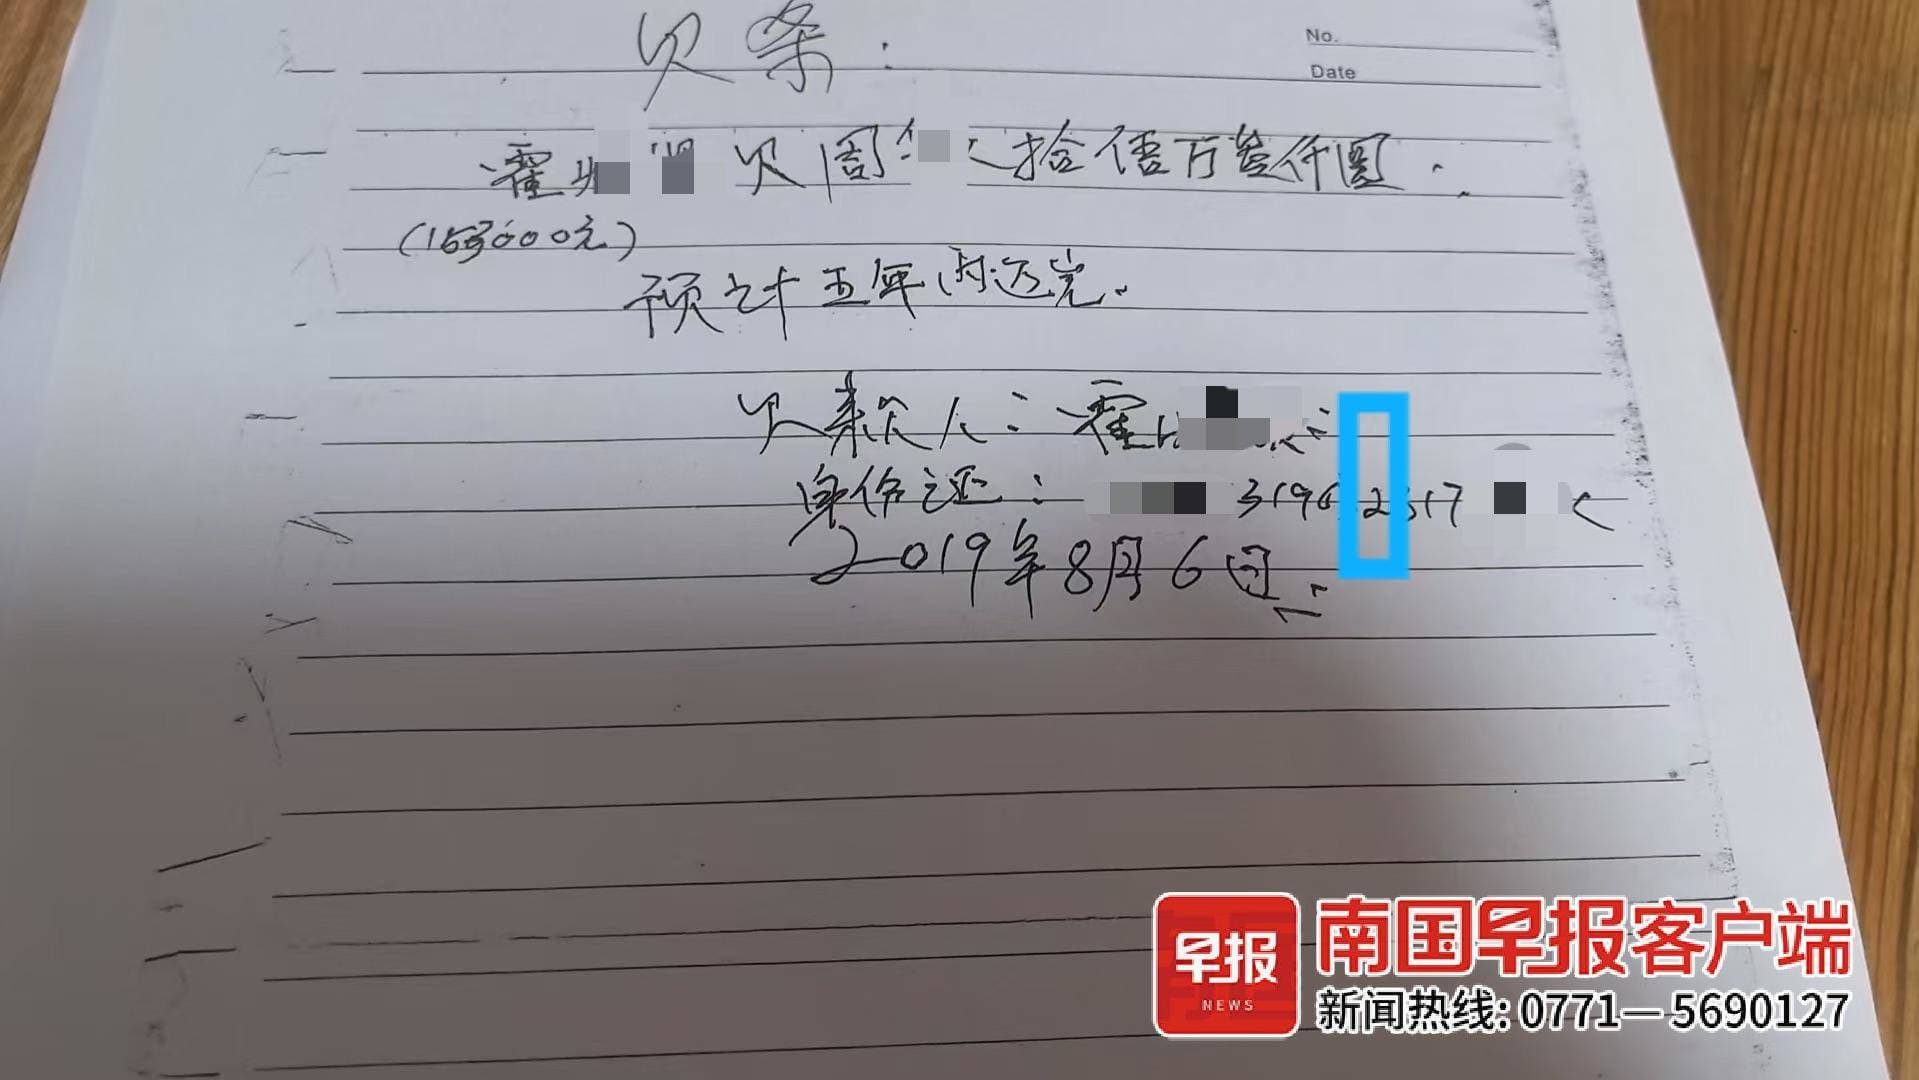 欠条:
No.
Date
霍 欠周 拾伍万叁仟圆.
(153000元)
预计五年内还完.
欠款人:霍
身份证: 3196 2317
2019年8月6日
早报
NEWS
南国早报客户端
新闻热线: 0771—5690127